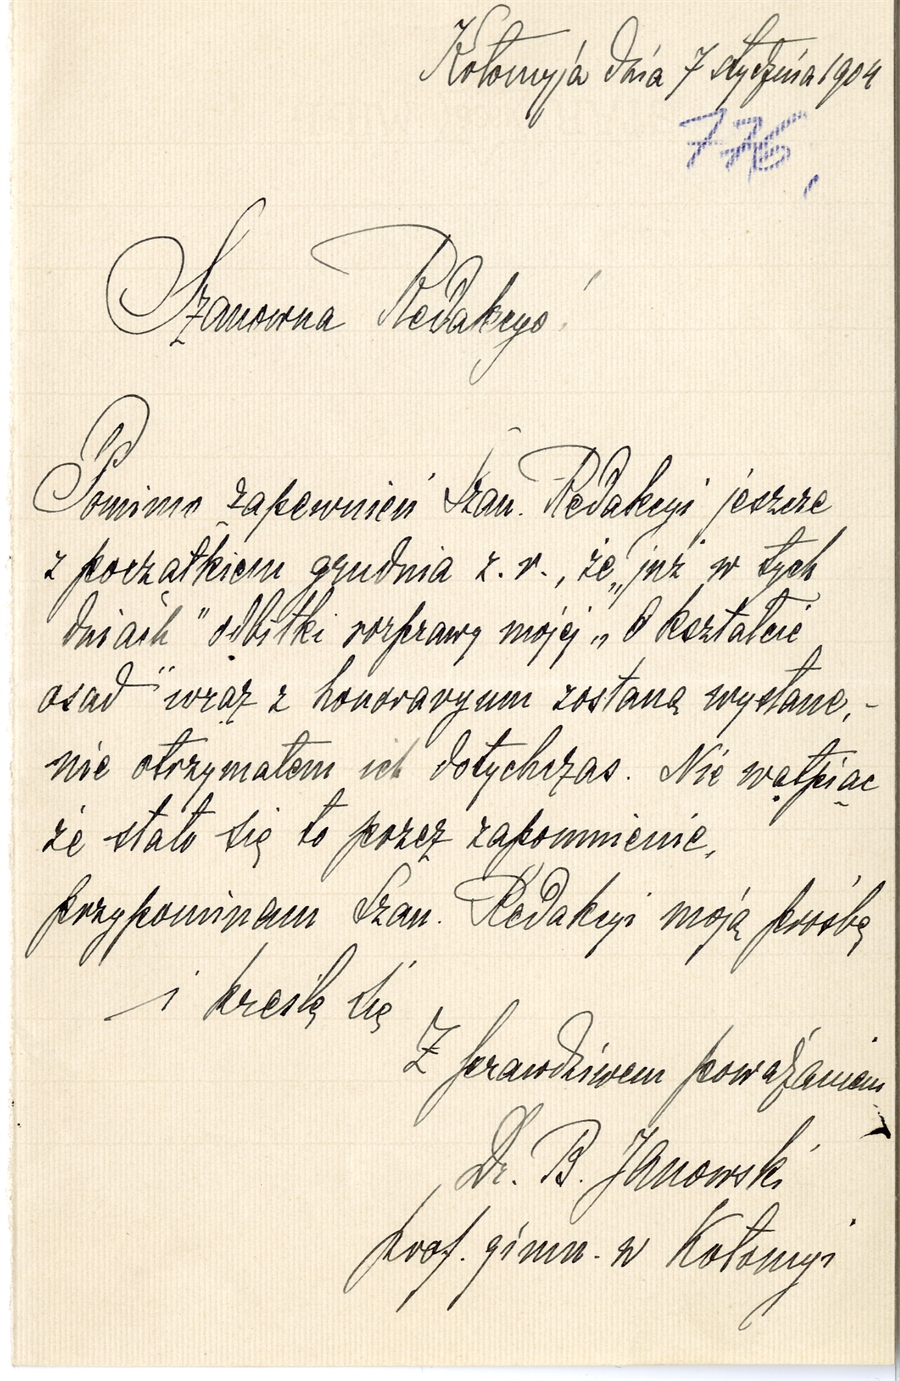 Kołomyja dnia 7 stycznia 1904
776,
Szanowna Redakcyo!
Pomimo zapewnień Szan. Redakcyi jeszcze
z początkiem grudnia z. r., że „już w tych
dniach" odbitki rozprawy mojej „O kształcie
osad" wraz z honoraryum zostaną wysłane, -
nie otrzymałem ich dotychczas. Nie wątpiąc
że stało się to przez zapomnienie,
przypominam Szan. Redakcyi moją prośbę
i kreślę się
Z prawdziwem poważaniem
Dr. B. Janowski
prof. gimn. w Kołomyi